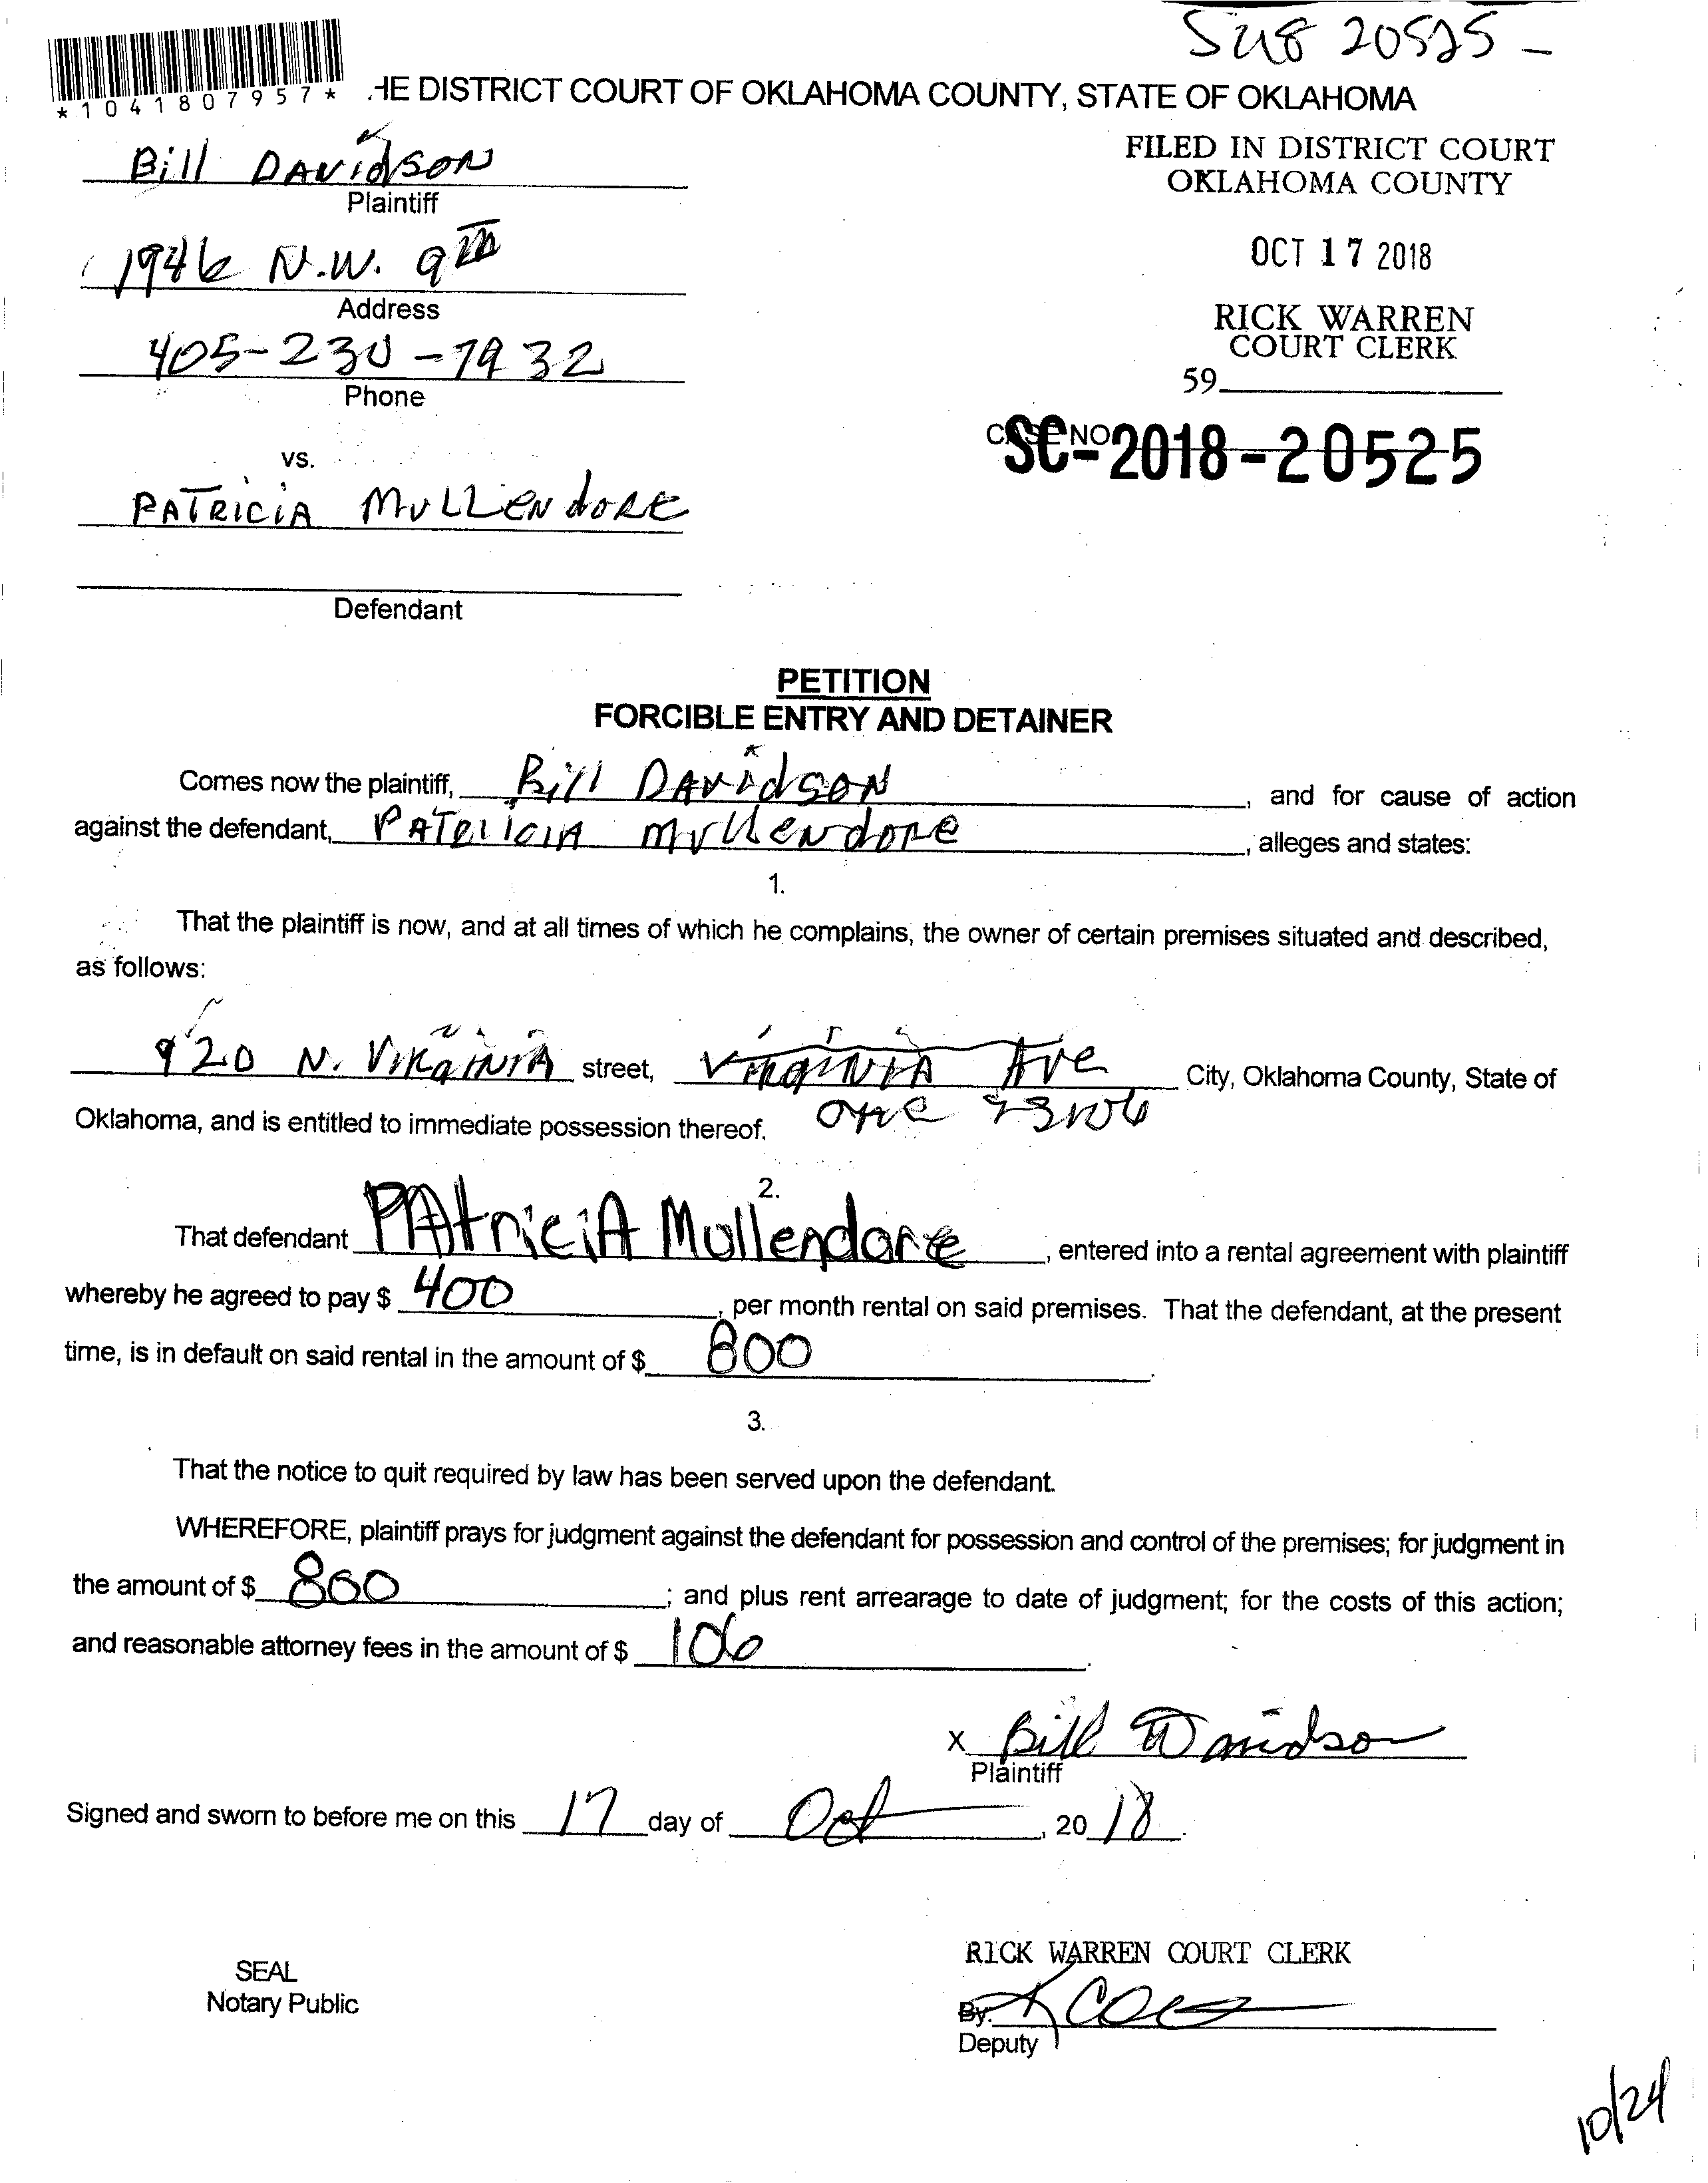 20525 -
*1041807957* HE DISTRICT COURT OF OKLAHOMA COUNTY, STATE OF OKLAHOMA
Bill DAVidSON
Plaintiff
FILED IN DISTRICT COURT
OKLAHOMA COUNTY
1946 N.W. 9TH
Address
OCT 17 2018
405-230-7932
Phone
RICK WARREN
COURT CLERK
59
vs.
CASE NO
SC-2018-20525
PATRICIA MULLENdORE
Defendant
PETITION
FORCIBLE ENTRY AND DETAINER
Comes now the plaintiff, Bill DAVidSON, and for cause of action
against the defendant, PATRICIA MullENdORE, alleges and states:
1.
That the plaintiff is now, and at all times of which he complains, the owner of certain premises situated and described,
as follows:
920 N. VIRGINIA street, VIRGINIA AVe City, Oklahoma County, State of
Oklahoma, and is entitled to immediate possession thereof. 73106
2.
That defendant PAtriciA Mullendore, entered into a rental agreement with plaintiff
whereby he agreed to pay $ 400, per month rental on said premises. That the defendant, at the present
time, is in default on said rental in the amount of $ 800.
3.
That the notice to quit required by law has been served upon the defendant.
WHEREFORE, plaintiff prays for judgment against the defendant for possession and control of the premises; for judgment in
the amount of $ 800; and plus rent arrearage to date of judgment; for the costs of this action;
and reasonable attorney fees in the amount of $ 106.
X Bill Davidson
Plaintiff
Signed and sworn to before me on this 17 day of Oct, 2018.
SEAL
Notary Public
RICK WARREN COURT CLERK
By:
Deputy
10/24